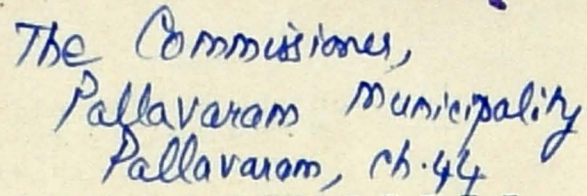 The Commissioner,
Pallavaram Municipality
Pallavaram, Ch.44